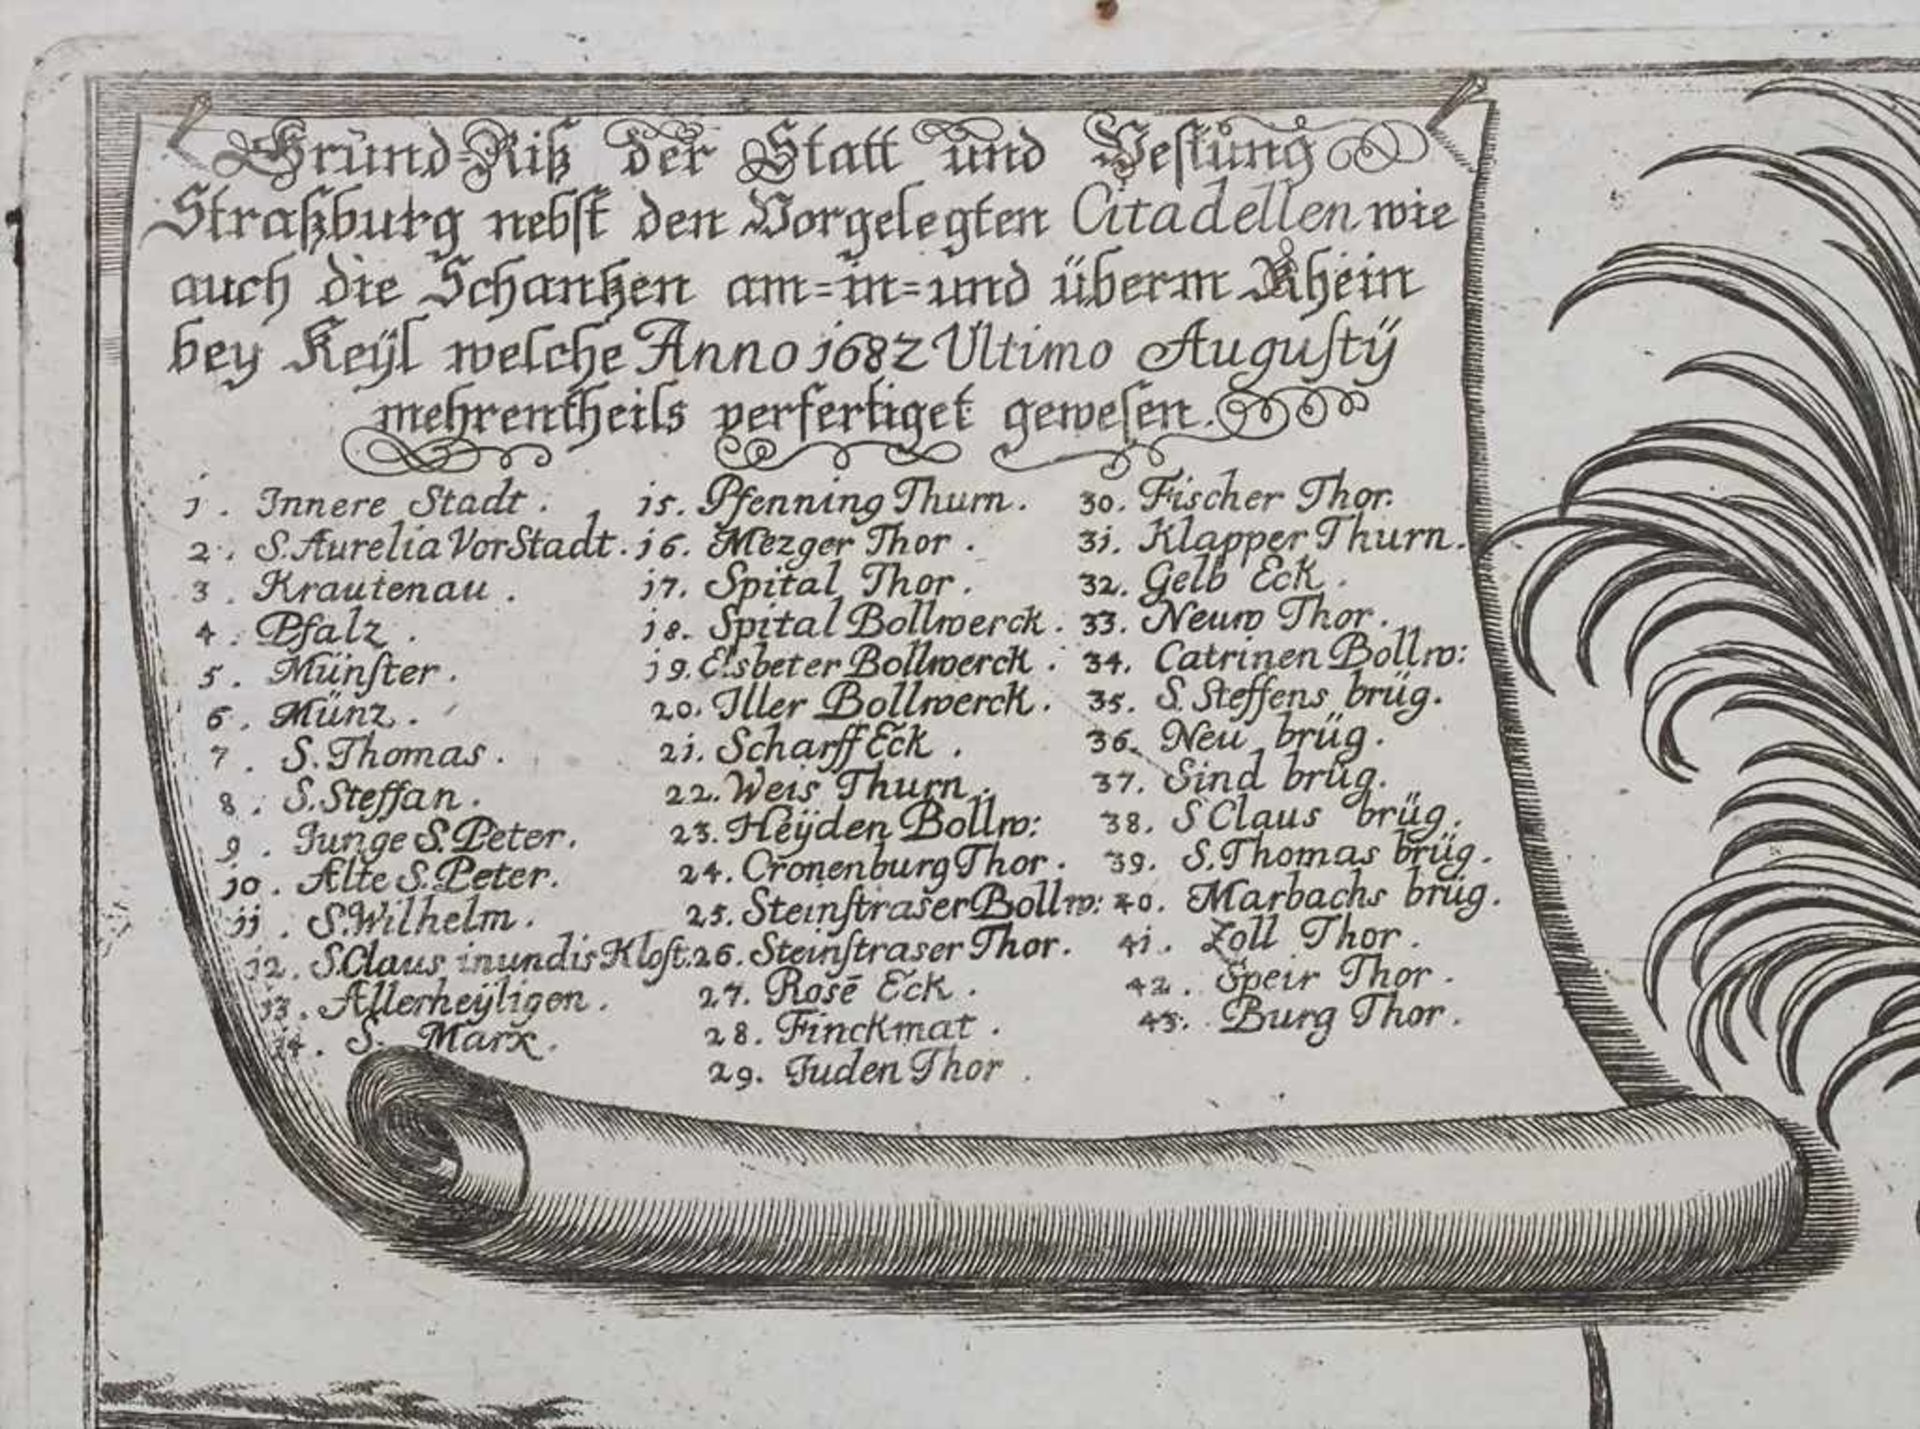 Grund=Riß der Statt und Vestung
Straßburg nebst den Vorgelegten Citadellen wie
auch die Schantzen am=in=und überm Rhein
bey Keÿl welche Anno 1682 Ultimo Augustÿ
mehrentheils verfertiget gewesen.
1. Innere Stadt.
2. S. Aurelia VorStadt.
3. Krautenau.
4. Pfalz.
5. Münster.
6. Münz.
7. S. Thomas.
8. S. Steffan.
9. Junge S. Peter.
10. Alte S. Peter.
11. S. Wilhelm.
12. S. Claus inundis Klost.
13. Allerheÿligen.
14. S. Marx.
15. Pfenning Thurn.
16. Mezger Thor.
17. Spital Thor.
18. Spital Bollwerck.
19. Elsbeter Bollwerck.
20. Iller Bollwerck.
21. Scharff Eck.
22. Weis Thurn.
23. Heÿden Bollw:
24. Cronenburg Thor.
25. Steinstraser Bollw:
26. Steinstraser Thor.
27. Rosē Eck.
28. Finckmat.
29. Juden Thor.
30. Fischer Thor.
31. Klapper Thurn.
32. Gelb Eck.
33. Neuw Thor.
34. Catrinen Bollw:
35. S. Steffens brüg.
36. Neu brüg.
37. Sind brüg.
38. S Claus brüg.
39. S. Thomas brüg.
40. Marbachs brüg.
41. Zoll Thor.
42. Speir Thor.
43. Burg Thor.